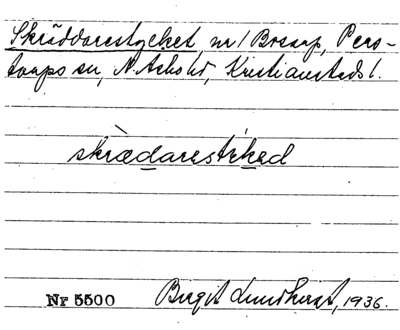 Skräddarestycket, nr 1 Bosarp, Pers-
torps sn, N. Åsbo hd, Kristianstads l.
skræ̀darestɛ́ked
Nr 5500 Birgit Lundkvist, 1936.